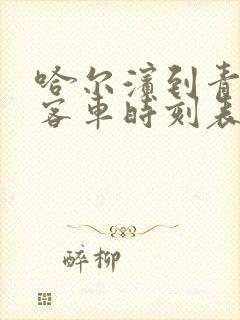 哈尔滨到青
客车时刻表
醉柳